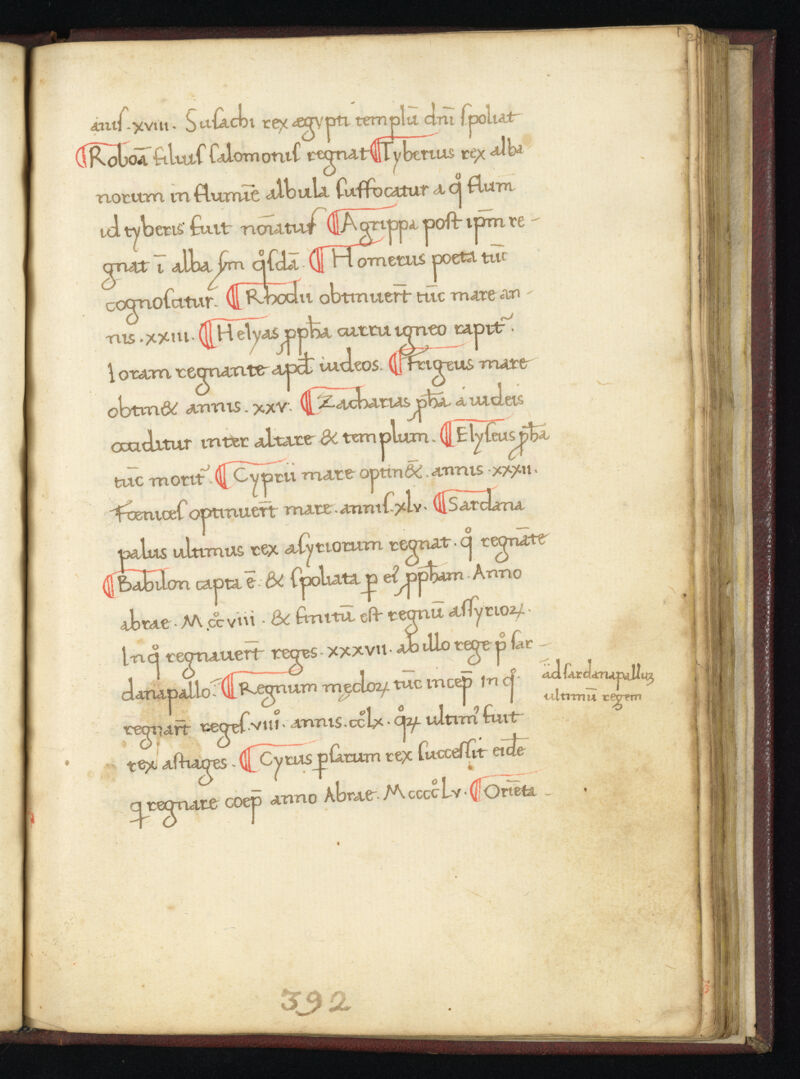 anis .xviii. Susachi rex ægypti templū dni̅ spoliat
¶Roboā filius salomonis regnat ¶Tyberius rex alba
norum in flumie̅ albula suffocatur a qͦ flum
id tyberis fuit noīatus ¶Agrippa post ipm̅ re-
gnat ī alba sm qͦsdā. ¶Homerus poeta tūc
cognoscitur. ¶Rhodii obtinuerт̅ tūc mare an-
nis .xxiii. ¶Helyas ppħa curru igneo rapit᷑.
Ioram regnante apđ iudeos. ¶Frigeus mare
obtin& annis. xxv. ¶Zacharias pħa a iudeis
occiditur inter altare & templum. ¶Elyseus pħa
tūc morit᷑. ¶Cyprii mare optin&̅. annis .xxxii.
Fœnices optinuerт̅ mare. annis. xlv. ¶Sardana
palus ultimus rex asyriorum regnat. qͦ regnāte
¶Babilon capta ē. & spoliata ꝑ eꝰ ꝓpħam. Anno
abrae. M.ccͦviii. & finitū est regnū assyrioꝝ.
In qͦ regnauerт̅ reges. xxxvii. ab illo rege pͦ sar-
danapallo. ¶Regnum medoꝝ tūc incep̅ In qͦ
regnarт̅ reges .viiiͦ. annis. ccͦlx. qͦꝝ ultimꝰ fuit
rex astiages. ¶Cyrus ꝑsarum rex successit eidē
q regnare coep̅ anno Abrae. MccccͦLv. ¶Oriēta-
ad sardanapalluꝫ
ultimū regem
392